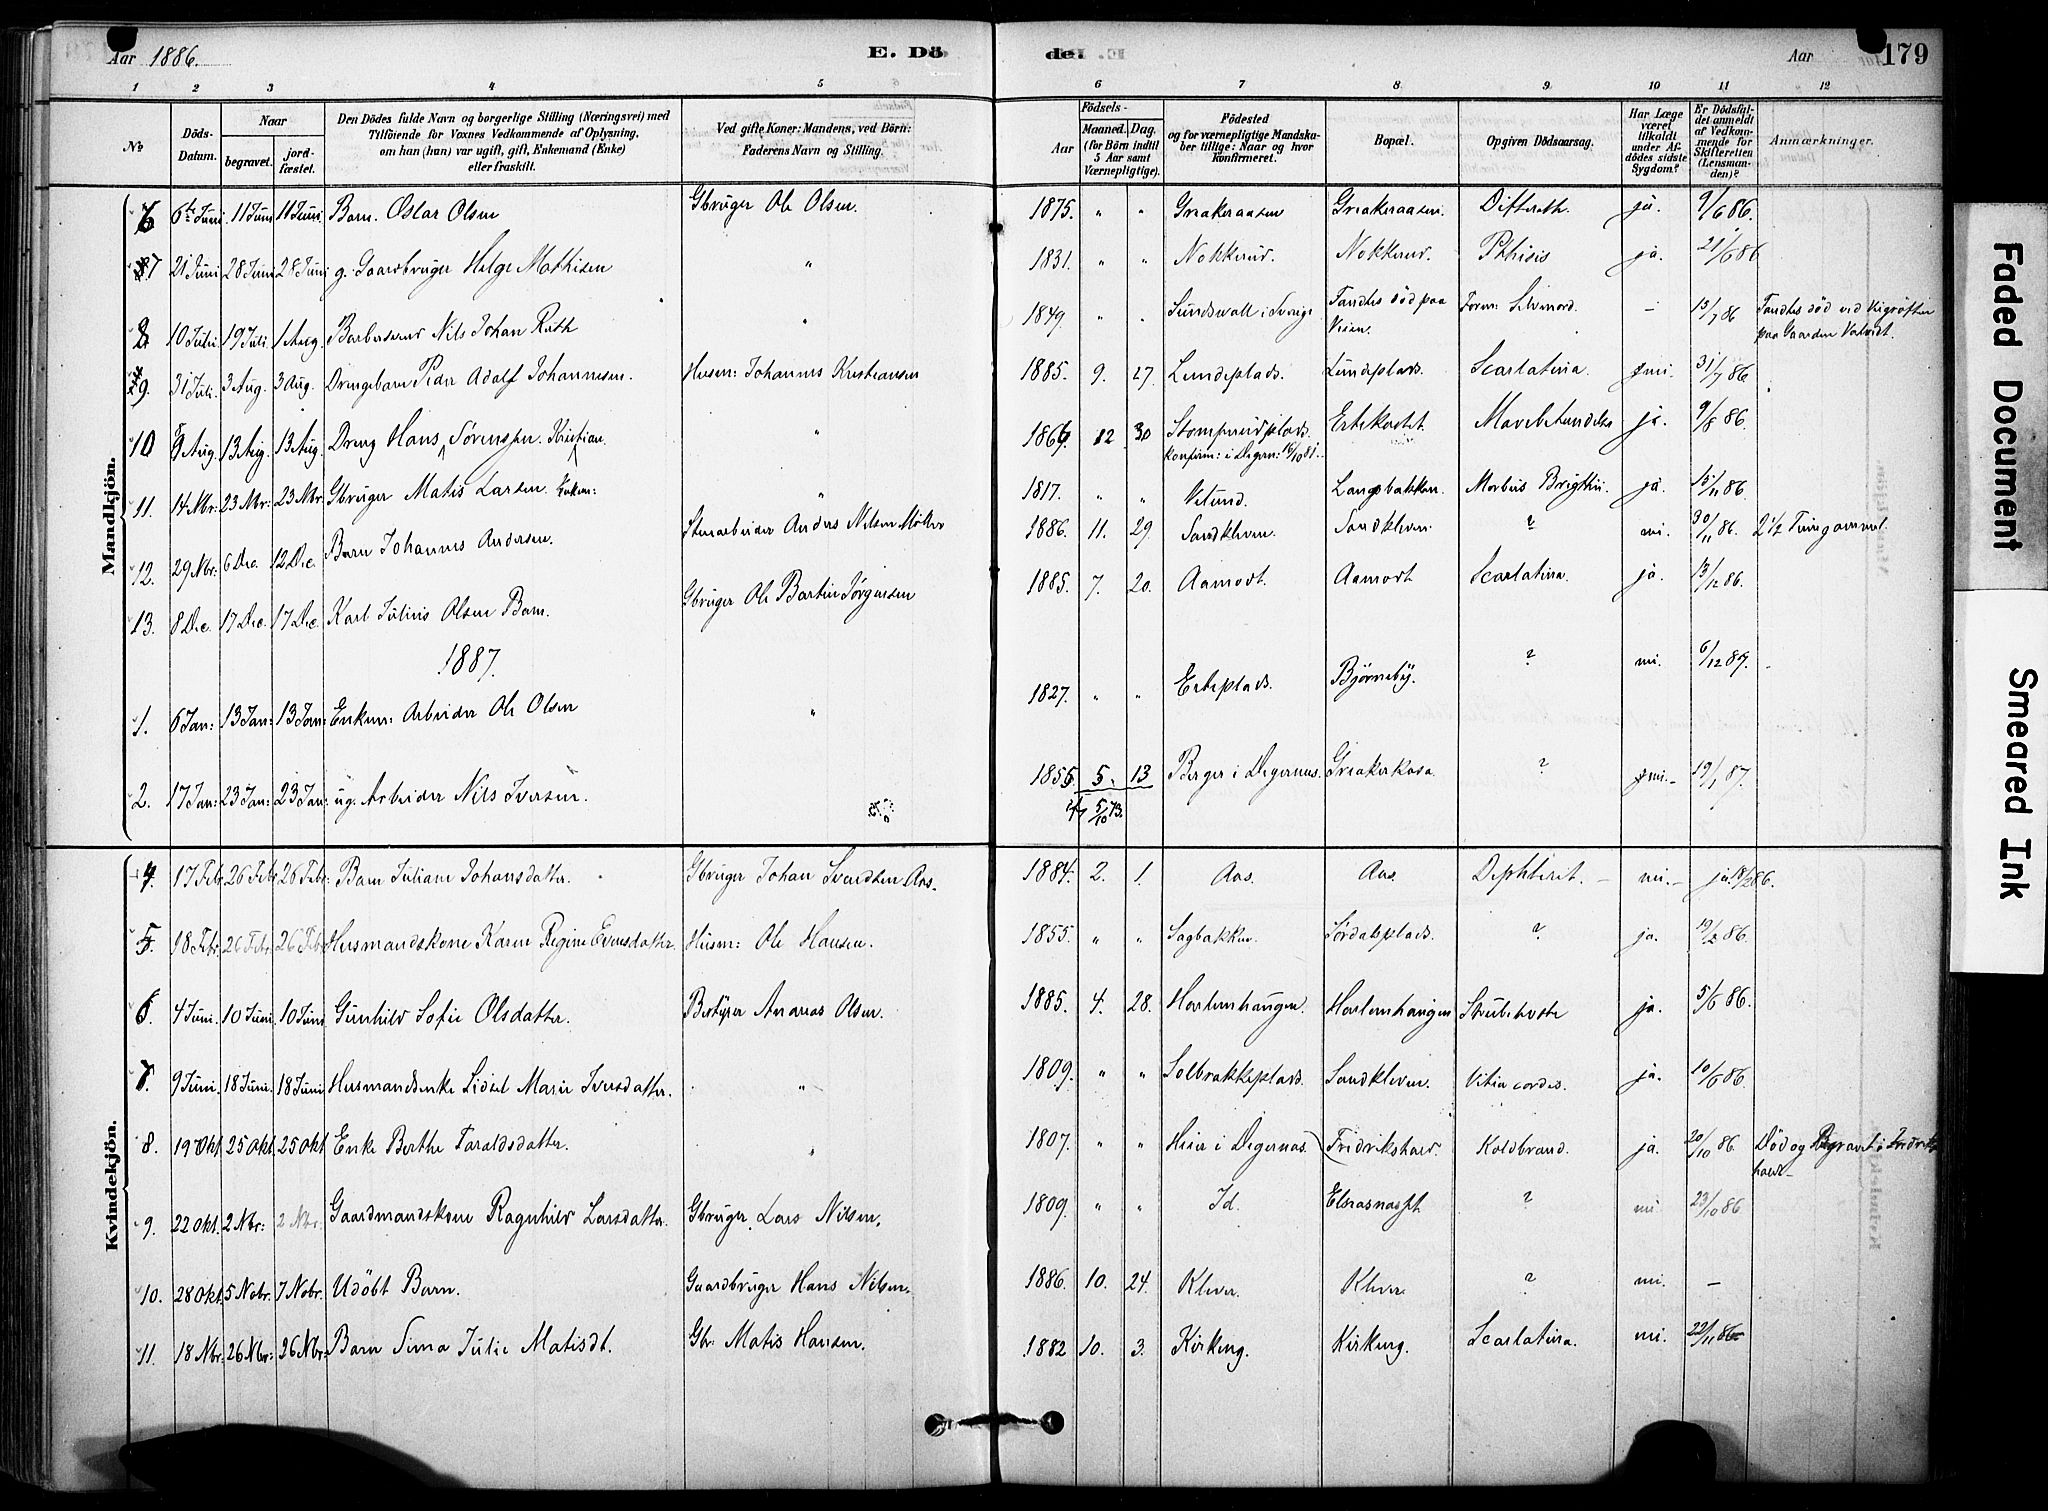 Aar 1886. E. Dö de. Aar 179
1 2 3 4 5 6 7 8 9. 10 11 12
No Döds-Datum. Naar begravet. jord-fæstet. Den Dödes fulde Navn og borgerlige Stilling (Næringsvei) med Tilföiende for Voxnes Vedkommende af Oplysning, om han (hun) var ugift, gift, Enkemand (Enke) eller fraskilt. Ved gifte Koner: Mandens, ved Börn: Faderens Navn og Stilling. Födsels- Aar Maaned. Dag. (for Börn indtil 5 Aar samt Værnepligtige). Födested og for værnepligtige Mandska-ber tillige: Naar og hvor Konfirmeret. Bopæl. Opgiven Dödsaarsag. Har Læge været tilkaldt under Af-dödes sidste Sygdom? Er Dödsfal-det anmeldt af Vedkom-mende for Skifteretten (Lensman-den)? Anmærkninger.
Mandkjön.
6 6te Juni. 11 Juni 11 Juni. Barn. Oskar Olsen Gbruger Ole Olsen. 1875. " " Greakeraasen Greakeraasen. Difterith. ja. 9/6 86.
7 21 Juni 28 Juni 28 Juni g. Gaardbruger Helge Mathisen " 1831. " " Nokkerud. Nokkerud. Phtisis ja. 21/6 86
8 10 Juli. 19 Juli. 1 Aug. Nils Johan Rath " 1849. " " Sundsvall i Sverige Fandtes död paa Veien. Form: Selvmord. - 13/7 86 Fandtes död ved Veigröften paa Gaarden
9. 31 Juli. 3 Aug. 3 Aug. Drengebarn Peder Adolf Johannesen. Husm: Johannes Kristiansen 1885. 9. 27. Lundeplads. Lundeplads. Scarlatina. nei. 31/7 86
10 9 Aug. 13 Aug. 13 Aug. Dreng Hans Kristian Sørensen. " 1866 12 30 Stomperudplads. konfirm: i Degern: 16/10 81. ja. 9/8 86.
11. 14 Nbr. 23 Nbr: 23 Nbr. Gbruger Matis Larsen. Enkem: " 1817. " " Vilund. Langsbakken. Morbus Brigthii. ja. 15/11 86.
12. 29 Nbr. 6 Dec. 12 Dec. Barn Johannes Andersen. Stenarbeider Anders Nilsen 1886. 11. 29. Sandkleven. Sandkleven. ? nei. 30/11 86. 2 1/2 Time gammel.
13. 8 Dec. 17 Dec. 17 Dec. Karl Julius Olsen Barn. Gbruger Ole Martin Jørgensen 1885. 7. 20. Aamodt. Aamodt Scarlatina. ja. 13/12 86.
1887.
1. 6 Jan: 13 Jan: 13 Jan: Enkem: Arbeider Ole Olsen " 1827. " " Erteplads. Bjørneby. ? nei. 6/12 87.
2. 17 Jan: 23 Jan: 23 Jan: ug. Arbeider Nils Iversen. 1855 5. 13. Berger i Degernæs. Greakerkasa. ? nei. 19/1 87.
5/10 73.
Kvindekjön.
4. 17 Febr. 26 Febr. 26 Febr. Barn Juliane Johansdatter. Gbruger Johan Svendsen Aas. 1884. 2. 1. Aas. Aas. Dephterit. nei. ja. 18/2 86.
5. 18 Febr. 26 Febr. 26 Febr Husmandskone Karen Regine Evensdatter. Husm: Ole Hansen. 1855. " " Sagbakken. Sørdalsplads. ? ja. 19/2 86.
6. 4 Juni. 10 Juni. 10 Juni Gunhild Sofie Olsdatter. Andreas Olsen. 1885. 4. 28. Haslemhaugen. Haslemhaugen Strubehoste ja. 5/6 86.
7. 9 Juni. 18 Juni. 18 Juni Husmandsenke Lidsel Marie Iversdatter. " 1809. " " Solbrækkeplads. Sandkleven. Vitia cordis. ja. 10/6 86.
8. 19 Okt. 25 Okt. 25 Okt Enke Berthe Taraldsdatter. " 1807. " " Heier i Degernæs. Fridrikshald. Koldbrand. ja. 20/10 86. Död og Begravet i Fredriks hald
9. 22 Okt. 2 Nbr: 2 Nbr: Gaardmandskone Ragnhild Larsdatter. Gbruger Lars Nilsen. 1809. " " Id. ? nei. 23/10 86
10. 28 Okt. 5 Nobr. 7 Nobr. Udöbt Barn. Gaardbruger Hans Nilsen. 1886. 10. 24. Klever. Klever ? nei. -
11. 18 Nbr. 26 Nbr. 26 Nbr. Barn Sina Julie Matisdt. Gbr. Matis Hansen. 1882 10. 3. Kirkeng. Kirkeng. Scarlatina. nei. 22/11 86
Faded Document
Smeared Ink